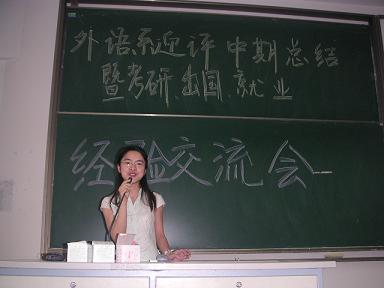 外语系迎评中期总结
暨考研、出国、就业
经验交流会